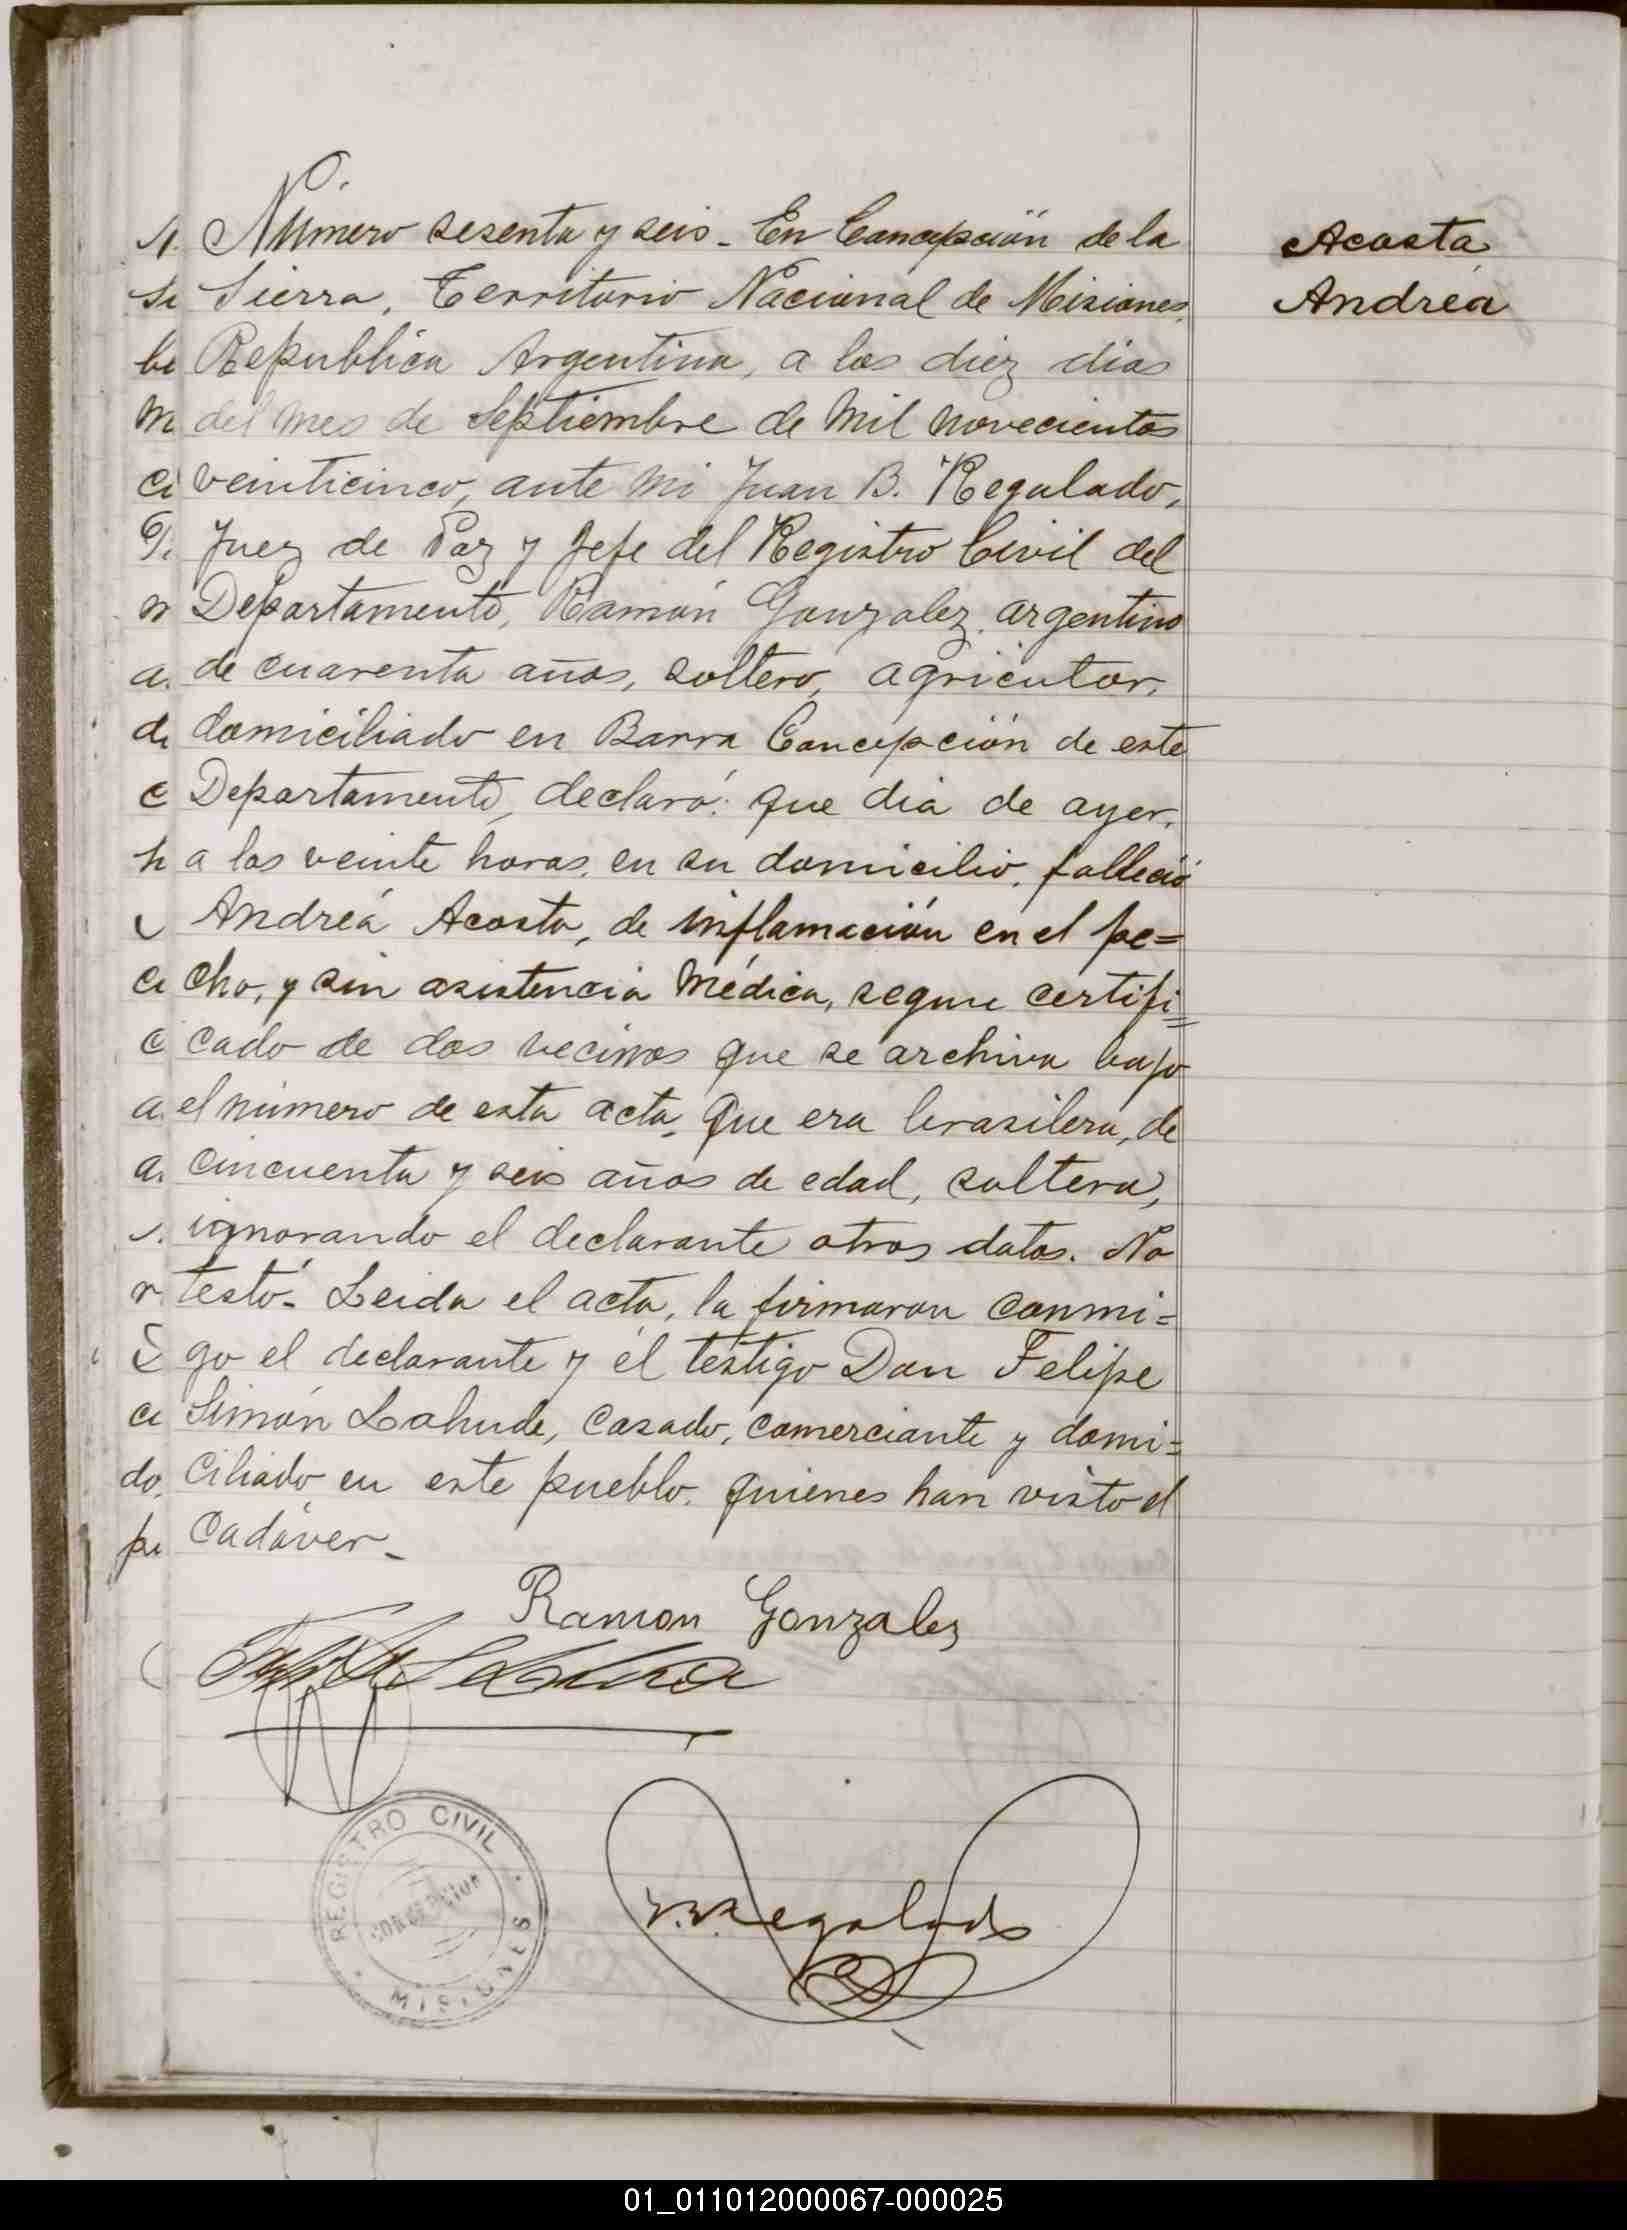 Número sesenta y seis - En Concepción de la
Sierra, Territorio Nacional de Misiones,
República Argentina, a los diez dias
del mes de Septiembre de mil novecientos
veinticinco, ante mi Juan B. Regalado,
Juez de Paz y Jefe del Registro Civil del
Departamento, Ramón Gonzalez, argentino
de cuarenta años, soltero, agricutor,
domiciliado en Barra Concepción de este
Departamento, declaró: que dia de ayer,
a las veinte horas, en su domicilio, falleció
Andréa Acosta, de inflamación en el pe=
cho, y sin asistencia médica, segun certifi=
cado de dos vecinos que se archiva bajo
el número de esta acta, que era brasilera, de
cincuenta y seis años de edad, soltera,
ignorando el declarante otros datos. No
testó.- Leida el acta, la firmaron conmi=
go el declarante y el testigo Don Felipe
Simón Lahude, casado, comerciante y domi=
ciliado en este pueblo, quienes han visto el
cadáver -
Acosta
Andréa
Ramon Gonzalez
REGISTRO CIVIL
CONCEPCION
MISIONES
J. B. Regalado
01_011012000067-000025